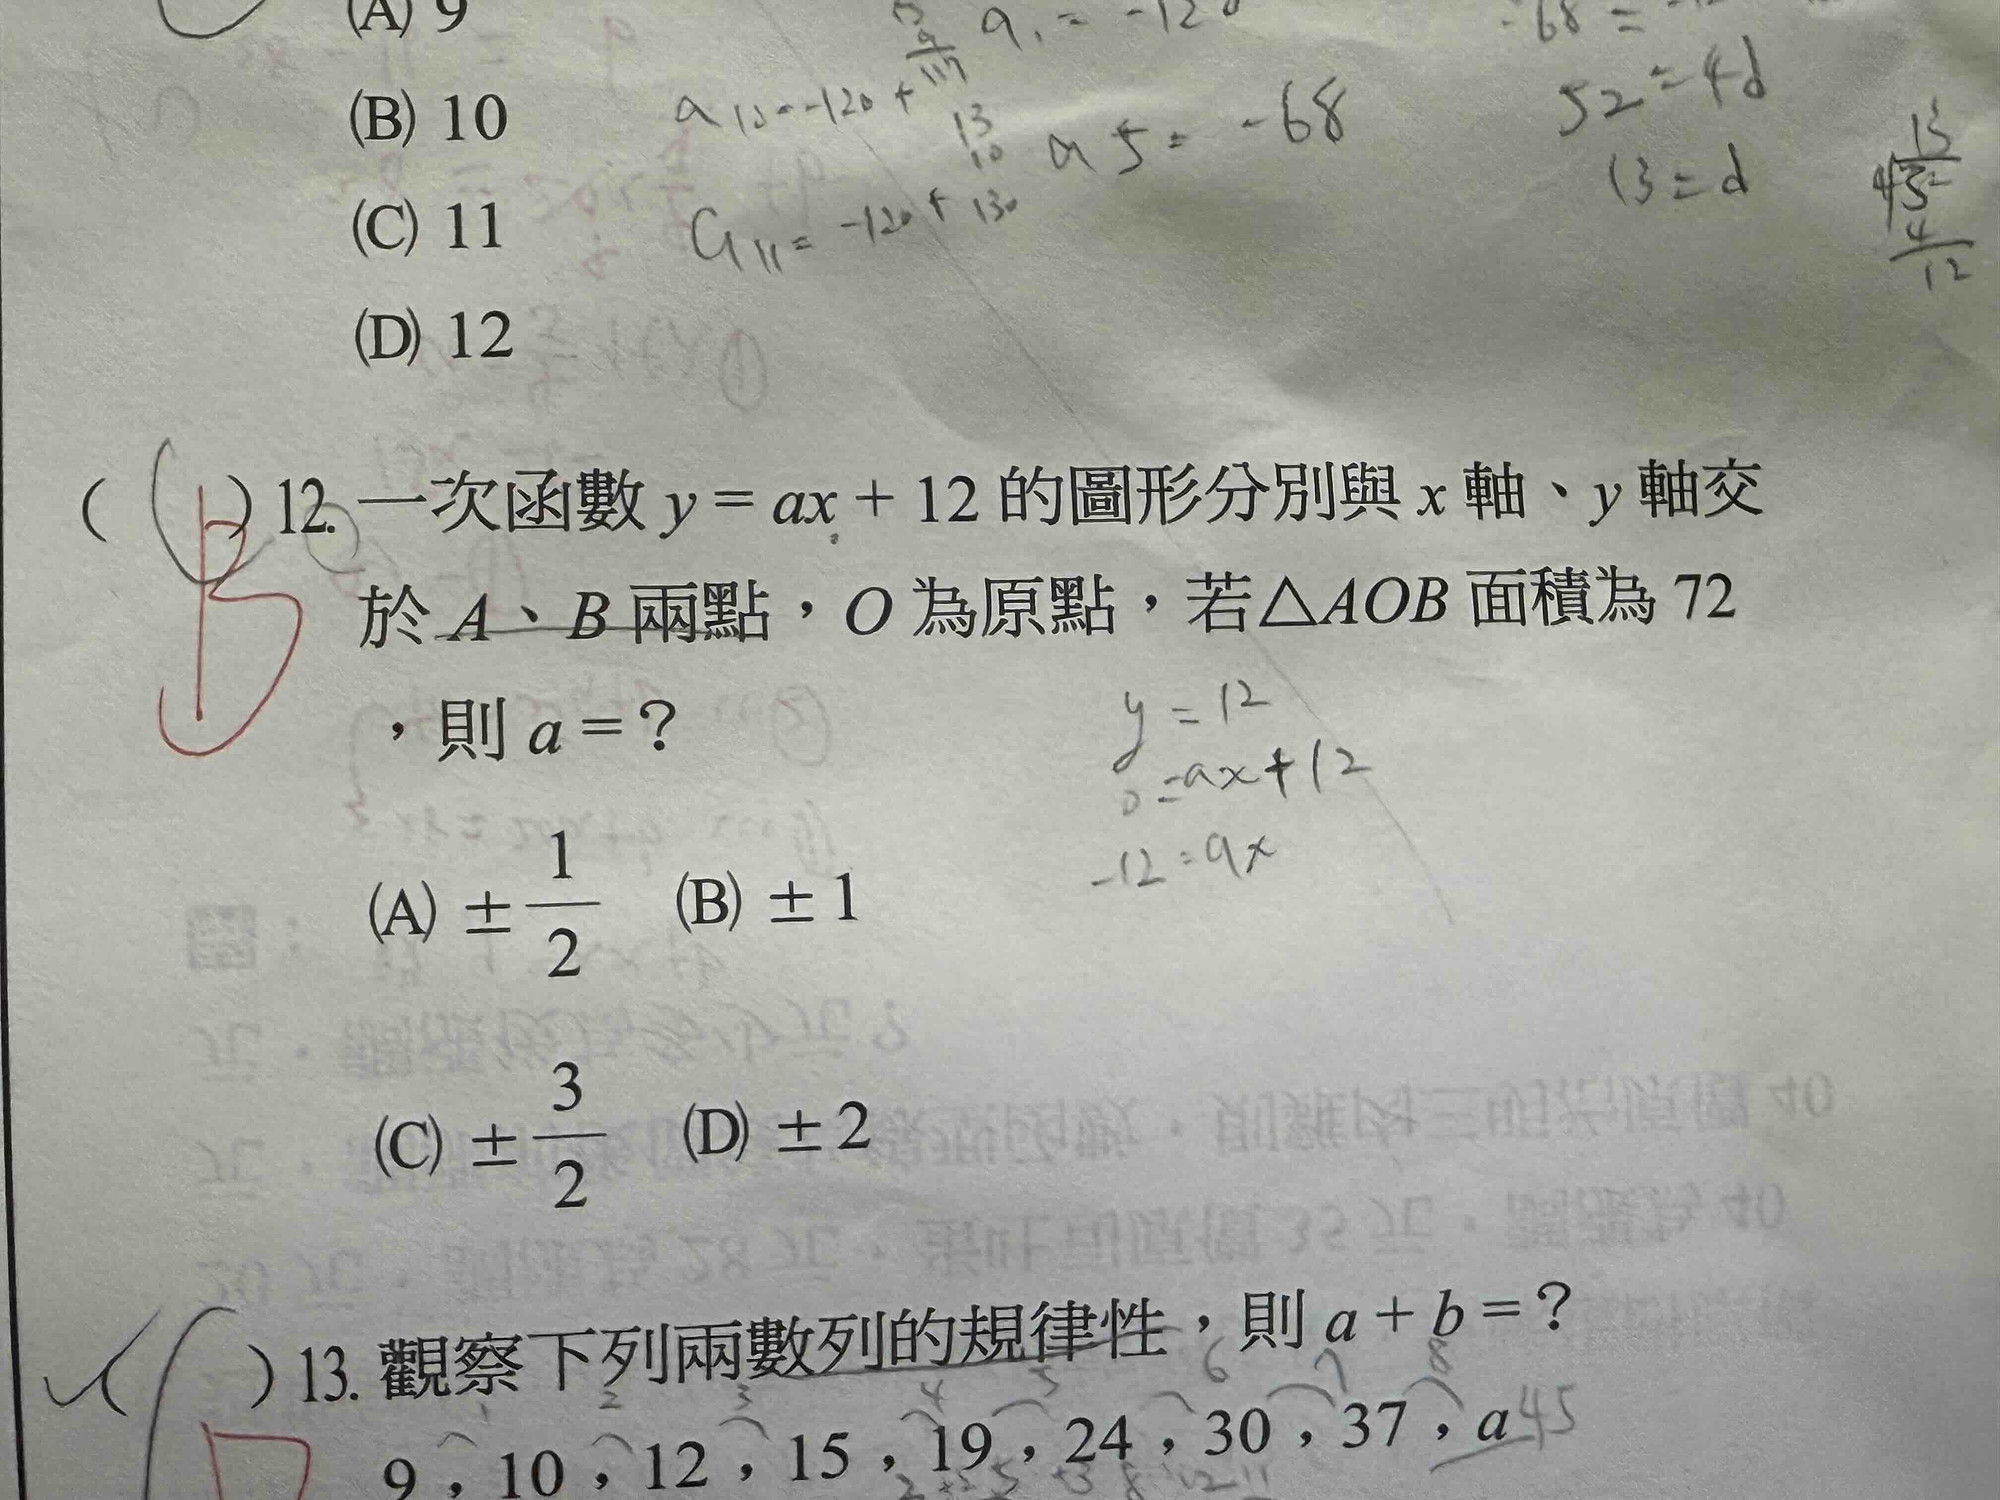 (A) 9
a₁ = -120
-68 =
(B) 10
a₁₀ = -120 + 117
a5 = -68
52 = 4d
13
10
13 = d
(C) 11
a₁₁ = -120 + 130
13
4
12
(D) 12
( B ) 12. 一次函數 y = ax + 12 的圖形分別與 x 軸、y 軸交
於 A、B 兩點，O 為原點，若△AOB 面積為 72
，則 a = ？
y = 12
0 = ax + 12
-12 = ax
(A) ± 1/2 (B) ± 1
(C) ± 3/2 (D) ± 2
( ) 13. 觀察下列兩數列的規律性，則 a + b = ？
1 2 3 4 5 6 7 8
9，10，12，15，19，24，30，37，a 45